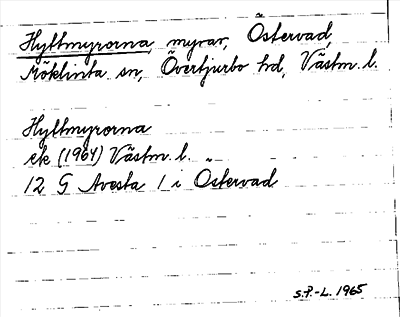 Hyttmyrorna, myrar, Östervad,
Möklinta sn, Övertjurbo hd, Västm. l.
Hyttmyrorna
ek (1964) Västm. l.
12 G Avesta 1 i Östervad
S.P.-L. 1965